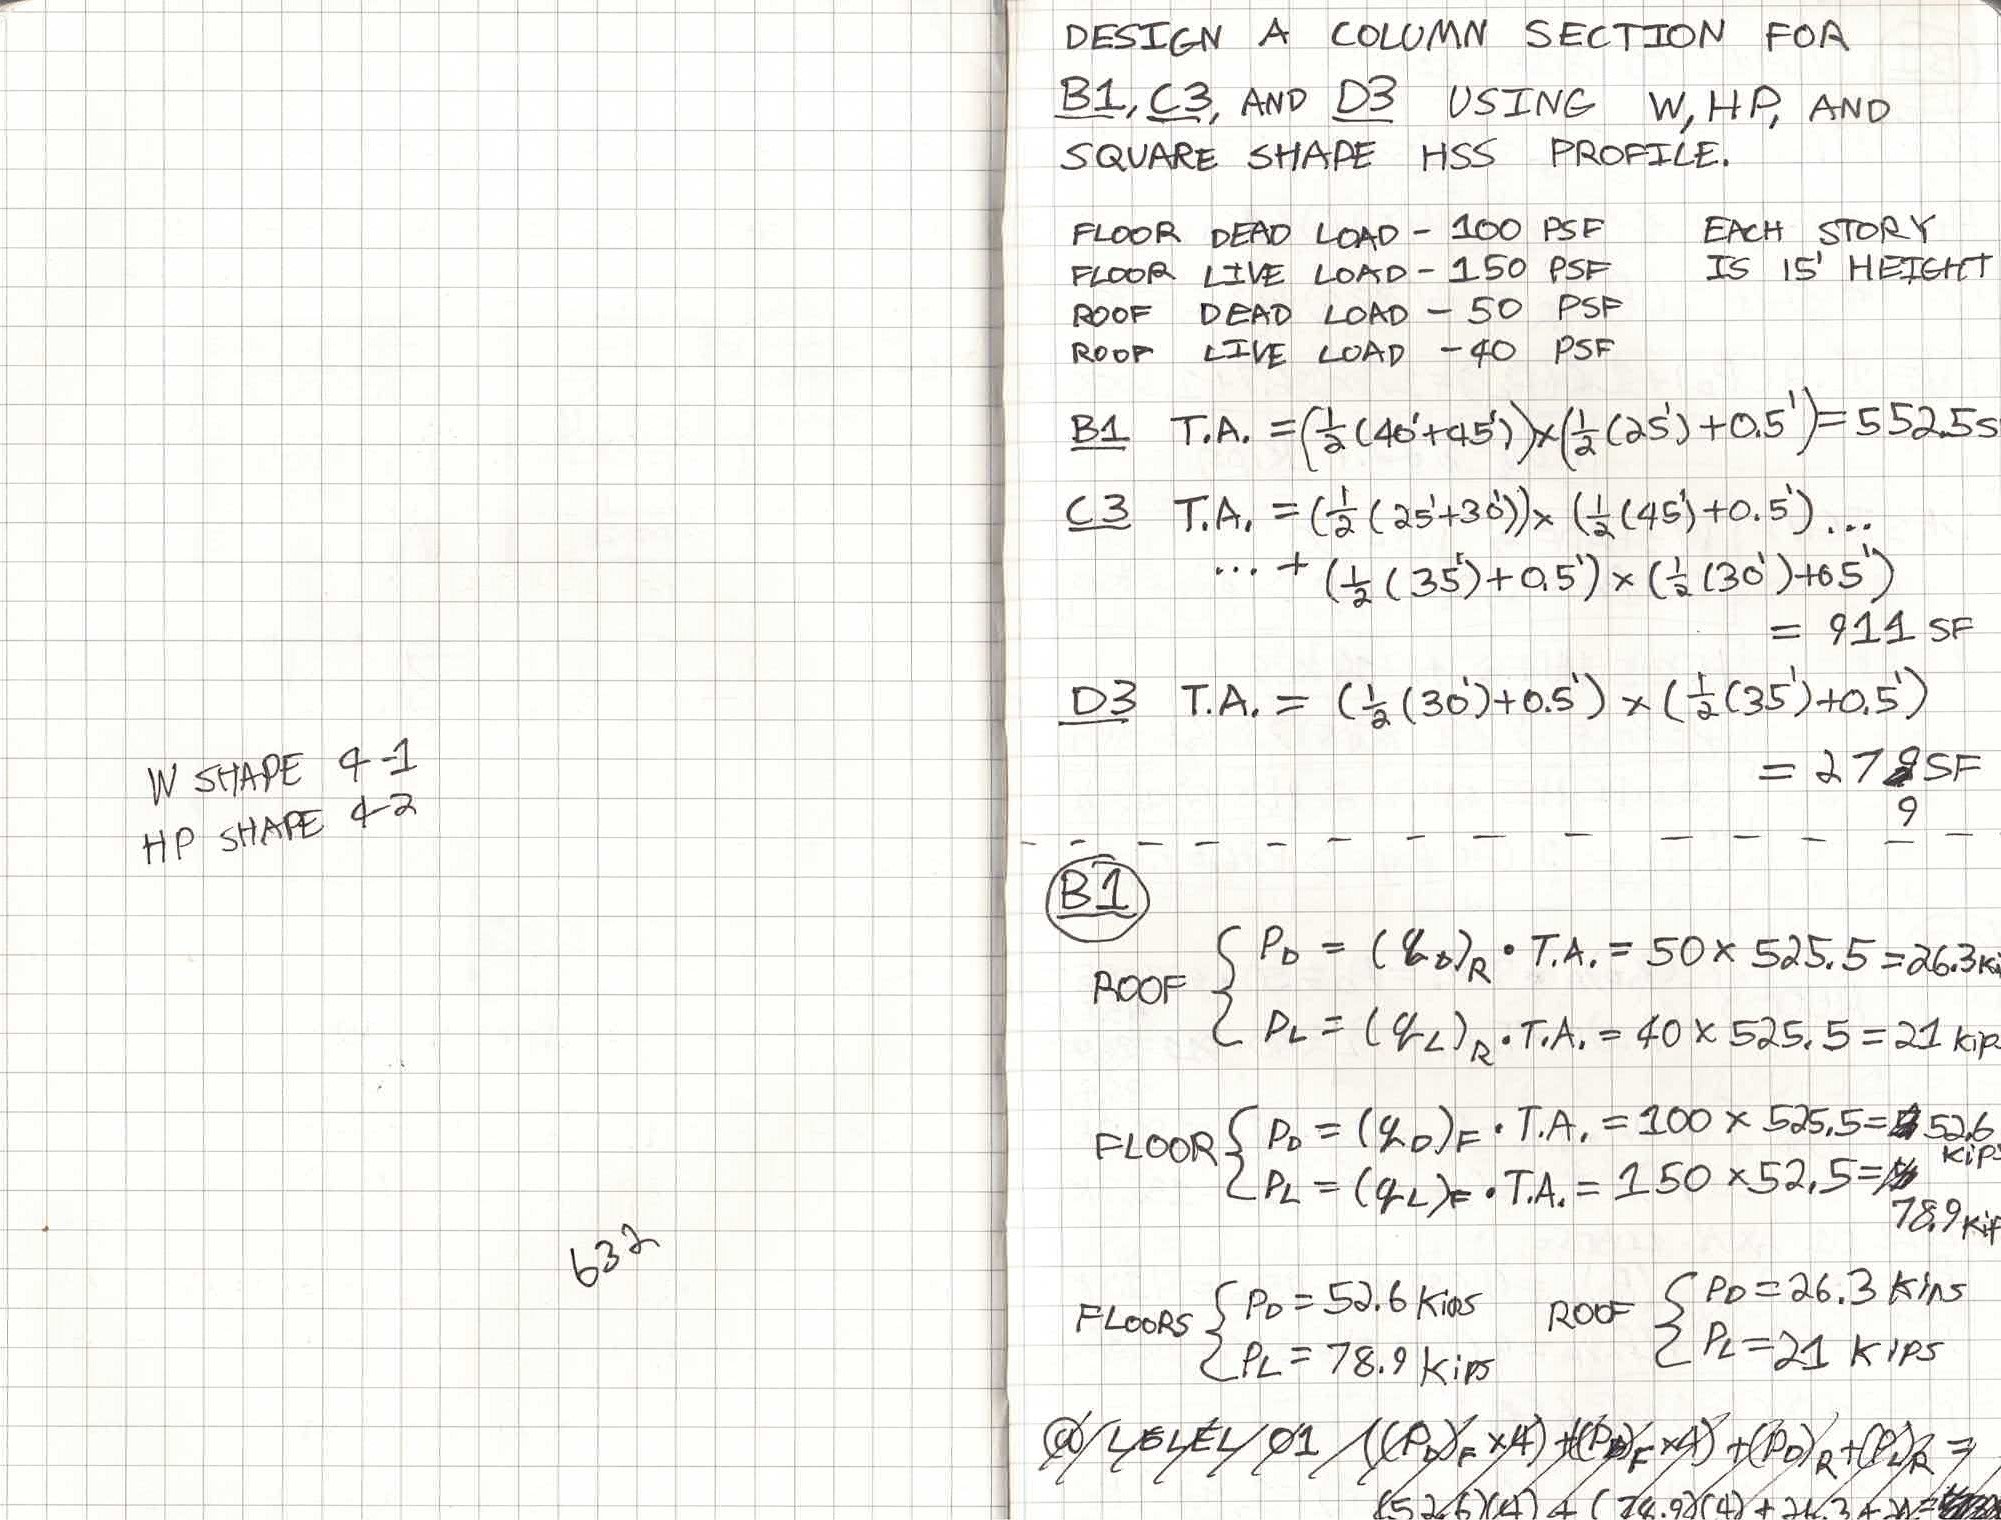 W SHAPE 4-1
HP SHAPE 4-2
632
DESIGN A COLUMN SECTION FOR
B1, C3, AND D3 USING W, HP, AND
SQUARE SHAPE HSS PROFILE.
FLOOR DEAD LOAD - 100 PSF
FLOOR LIVE LOAD - 150 PSF
ROOF DEAD LOAD - 50 PSF
ROOF LIVE LOAD - 40 PSF
EACH STORY
IS 15' HEIGHT
B1 T.A. = (½(40'+45'))×(½(25')+0.5') = 552.5 S
C3 T.A. = (½(25'+30'))× (½(45')+0.5') ...
... + (½(35')+0.5') × (½(30')+05')
= 911 SF
D3 T.A. = (½(30')+0.5') × (½(35')+0.5')
= 279 SF
9
B1
ROOF { PD = (qD)R • T.A. = 50 × 525.5 = 26.3 Ki
PL = (qL)R • T.A. = 40 × 525.5 = 21 kip
FLOOR { PD = (qD)F • T.A. = 100 × 525.5 = 52.6
KIPS
PL = (qL)F • T.A. = 150 × 52.5 =
78.9 Kip
FLOORS { PD = 52.6 Kips
PL = 78.9 Kips
ROOF { PD = 26.3 Kips
PL = 21 KIPS
@ LEVEL 01 ((PD)F ×4) + (PD)F ×4) + (PD)R + (PL)R =
(52.6)(4) + (78.9)(4) + 26.3 + 21 =